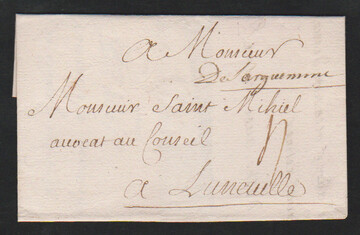 A Monsieur
De Sarguemine
Monsieur Saint Mihiel
avocat au Conseil
a Luneville